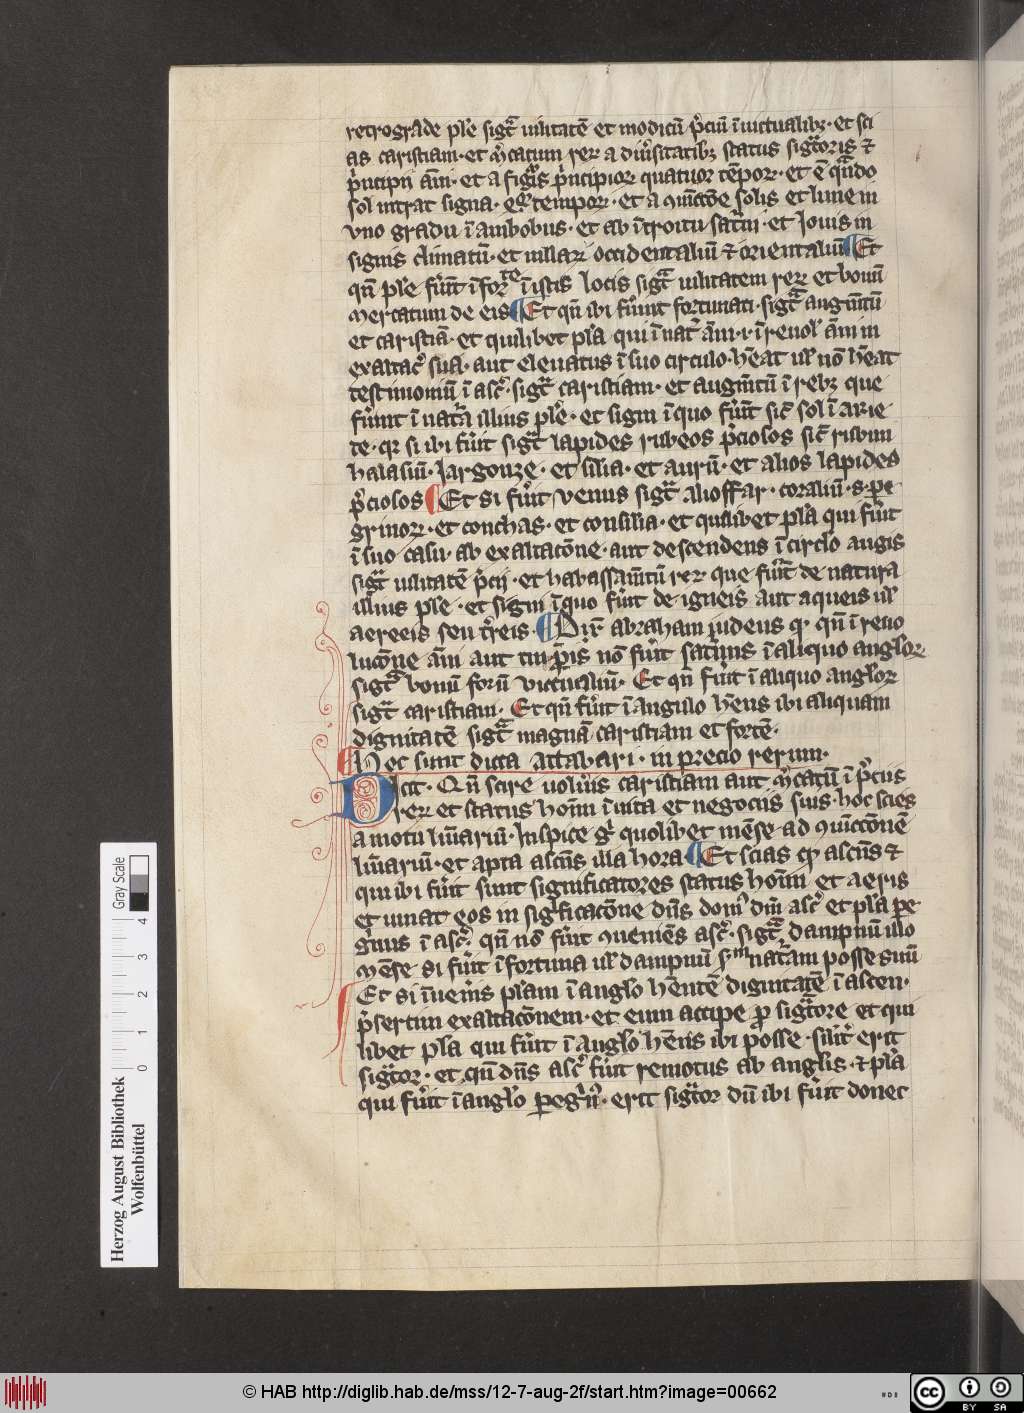 retrograde ple sigt̄ uilitatē et modicū p̄ciū ī uictualibꝫ · et sci
as caristiam · et m̄catum reꝝ a diūsitatibꝫ status sigt̄oris ⁊
p̄ncipii ām̄ · et a figis p̄ncipioꝝ quatuor tēpoꝝ · et ē qn̄do
sol intrat signa · tempoꝝ · et a ɔiūctōe solis et lune in
vno gradu ī ambobus · et ab ītroitu sat̄ni · et Iouis in
signis climatū · et uillaꝝ occidentaliū ⁊ orientaliū ¶ Et
qn̄ ple fūīt ī forte ī istis locis sigt̄ uilitatem reꝝ et bonū
mercatum de eis ¶ Et qn̄ ibi fūīnt fortunati · sigt̄ augm̄tū
et caristiā · et quilibet pla qui ī nat̄ ām̄ · ı · ī reuol' ām̄ in
exaltac̄ sua · aut eleuatus ī suo circulo · h̄eat ul' nō h̄eat
testimoniū ī asc̄ · sigt̄ caristiam · et augm̄tū ī rebꝫ que
fūīnt ī nat̄a illius ple · et signi ī quo fūīt sic̄ sol ī arie
te · qꝛ si ibi fūīt sigt̄ lapides rubeos p̄ciosos sic̄ risbim
halasiū · Iargonze · et silia · et aurū · et alios lapides
p̄ciosos ¶ Et si fūīt venus sigt̄ alioffar · coraliū · s · pe
grinoꝝ · et conchas · et consilia · et quilibet pla qui fūīt
ī suo casu · ab exaltacōne · aut descendens ī circlo augis
sigt̄ uilitatē p̄cii · et habassam̄tū reꝝ que fūīt de natura
illius ple · et signi ī quo fūīt de igneis aut aqueis ul'
aereeis seu t̄reis · ¶ Dix̄ abraham iudeus qꝫ qn̄ ī reuo
lucōne ām̄ aut nō fūīt sat̄nus ī aliquo angloꝝ
sigt̄ bonū foꝝ victualiū · Et qn̄ fūīt ī aliquo angloꝝ
sigt̄ caristiam · Et qn̄ fūīt ī angulo h̄ens ibi aliquam
dignitatē sigt̄ magnā caristiam et fortē ·
¶ Hec sunt dicta attabari · in precio rerum ·
Dicit · Qn̄ scire uolūis caristiam aut m̄catū ī p̄ciis
reꝝ et status hoīm ī uita et negociis suis · hoc scies
a motu lūariū · Inspice g̊ quolibet mēse ad ɔiūctōnē
lūariū · et apta ascn̄s illa hora ¶ Et scias qꝫ ascn̄s ⁊
qui ibi fūīt sunt significatores status hoīm et aeris
et iuuat eos in sigficacōne dn̄s dom' dn̄i asc̄ et pla pe
g̊nus ī asc̄ · qn̄ nō fūīt ɔueniēs asc̄ · sigt̄ dampnū illo
mēse si fūīt ī fortuna ul' dampnū s̄m nat̄am posse suū
Et si īuen̄is plam ī anglo h̄entē dignitatē ī ascen ·
p̄sertim exaltacōnem · et eum accipe ꝓ sigt̄ore et qui
libet pla qui fūīt ī anglo h̄ens ibi posse · silit̄ erit
sigt̄or · et qn̄ dn̄s asc̄ fūīt remotus ab anglis · ⁊ pla
qui fūīt ī anglo peg̊n̄ · erit sigt̄or dū ibi fūīt donec
Herzog August Bibliothek
Wolfenbüttel
0 1 2 3 4
Gray Scale
© HAB http://diglib.hab.de/mss/12-7-aug-2f/start.htm?image=00662
cc BY SA